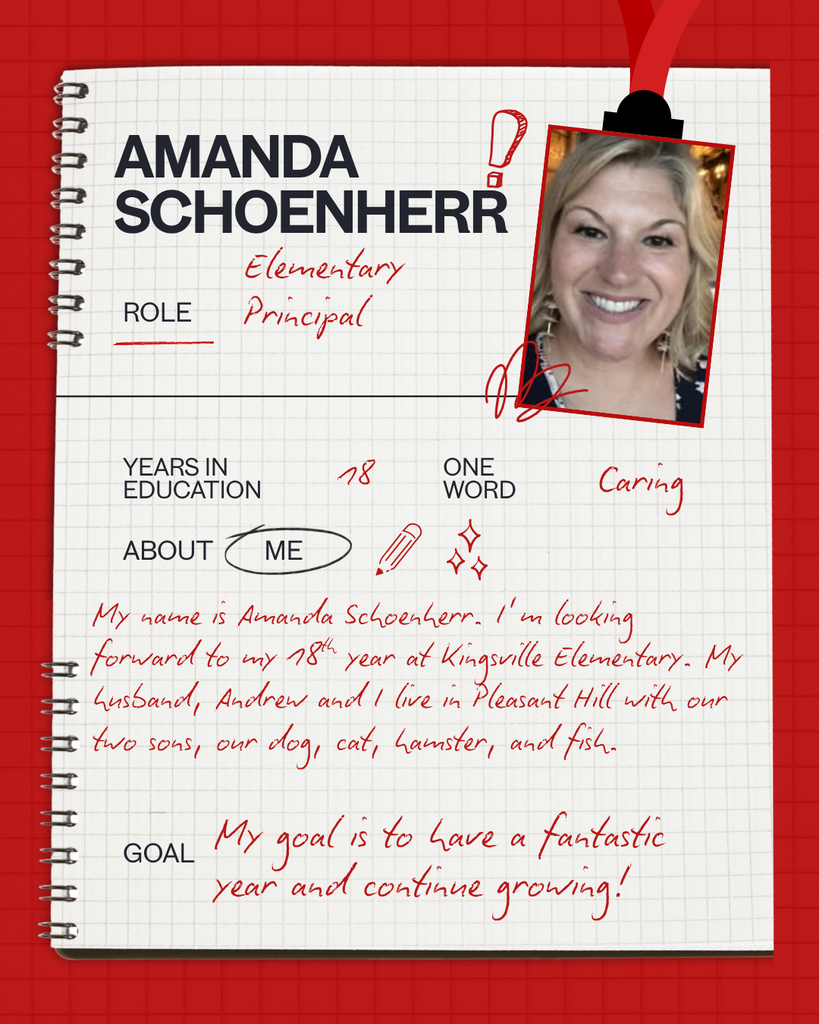 AMANDA
SCHOENHERR
ROLE
Elementary
Principal
YEARS IN
EDUCATION
18
ONE
WORD
Caring
ABOUT ME
My name is Amanda Schoenherr. I'm looking
forward to my 18th year at Kingsville Elementary. My
husband, Andrew and I live in Pleasant Hill with our
two sons, our dog, cat, hamster, and fish.
GOAL
My goal is to have a fantastic
year and continue growing!